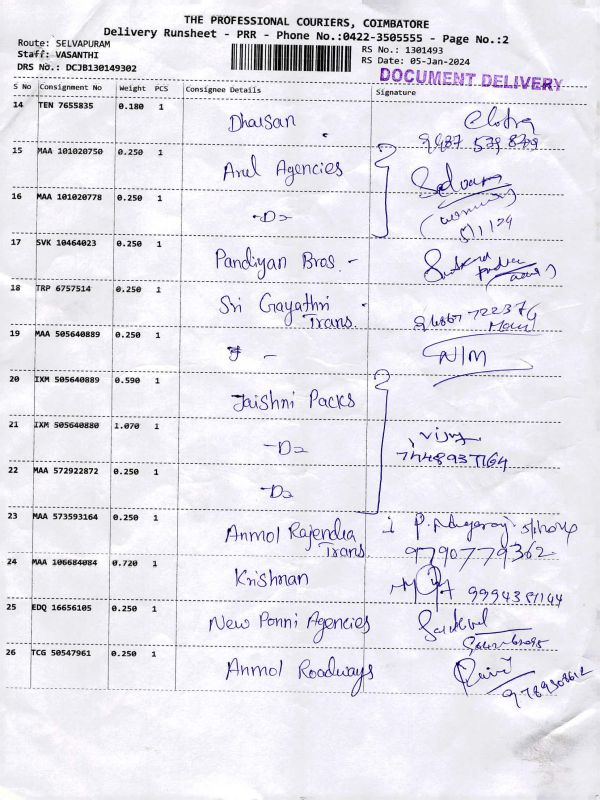 THE PROFESSIONAL COURIERS, COIMBATORE
Delivery Runsheet - PRR - Phone No.:0422-3505555 - Page No.:2
Route: SELVAPURAM
Staff: VASANTHI
DRS No.: DCJB130149302
RS No.: 1301493
RS Date: 05-Jan-2024
DOCUMENT DELIVERY
S No Consignment No Weight PCS Consignee Details Signature
14 TEN 7655835 0.180 1 Dharsan
15 MAA 101020750 0.250 1 Arul Agencies
16 MAA 101020778 0.250 1 -Do 5/1/24
17 SVK 10464023 0.250 1 Pandiyan Bros. -
18 TRP 6757514 0.250 1 Sri Gayathri
Trans.
19 MAA 505640889 0.250 1 N/M
20 IXM 505640889 0.590 1 Jaishni Packs
21 IXM 505640880 1.070 1 -Do Vijay
22 MAA 572922872 0.250 1 -Do
23 MAA 573593164 0.250 1 Anmol Rajendra
Trans 9790779362
24 MAA 106684084 0.720 1 Krishnan
25 EDQ 16656105 0.250 1 New Ponni Agencies
26 TCG 50547961 0.250 1 Anmol Roadways